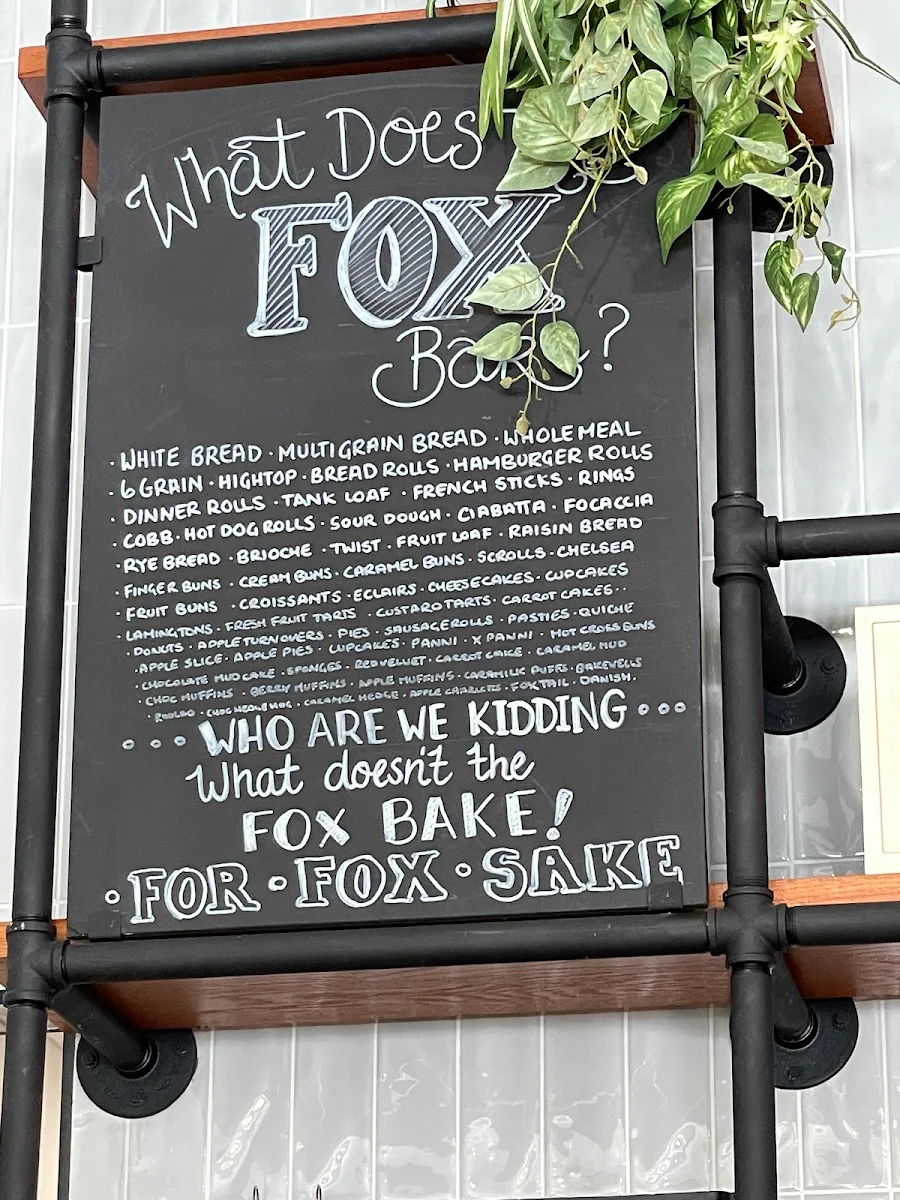 What Does
FOX
Bake?
· WHITE BREAD · MULTIGRAIN BREAD · WHOLEMEAL
· 6 GRAIN · HIGHTOP · BREAD ROLLS · HAMBURGER ROLLS
· DINNER ROLLS · TANK LOAF · FRENCH STICKS · RINGS
· COBB · HOT DOG ROLLS · SOUR DOUGH · CIABATTA · FOCACCIA
· RYE BREAD · BRIOCHE · TWIST · FRUIT LOAF · RAISIN BREAD
· FINGER BUNS · CREAM BUNS · CARAMEL BUNS · SCROLLS · CHELSEA
· FRUIT BUNS · CROISSANTS · ECLAIRS · CHEESECAKES · CUPCAKES
· LAMINGTONS · FRESH FRUIT TARTS · CUSTARD TARTS · CARROT CAKES ··
· DONUTS · APPLE TURNOVERS · PIES · SAUSAGE ROLLS · PASTIES · QUICHE
· APPLE SLICE · APPLE PIES · CUPCAKES · PANNI · X PANNI · HOT CROSS BUNS
· CHOCOLATE MUDCAKE · SPONGES · RED VELVET · CARROT CAKE · CARAMEL MUD
· CHOC MUFFINS · BERRY MUFFINS · APPLE MUFFINS · CARAMILK PUFFS · BAKEWELLS
· CHOC HEDGEHOG · CARAMEL HEDGE · APPLE CHARLOTTES · FOXTAIL · DANISH.
· · · WHO ARE WE KIDDING · · ·
What doesn't the
FOX BAKE!
· FOR · FOX · SAKE